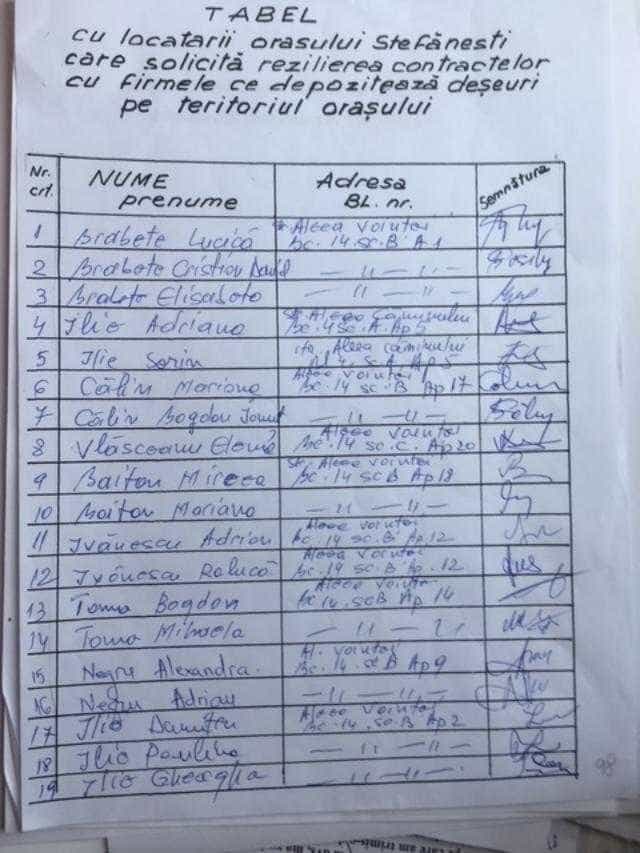 TABEL
cu locatarii orasului Stefănesti
care solicită rezilierea contractelor
cu firmele ce depozitează deșeuri
pe teritoriul orașului
Nr. crt. NUME prenume Adresa BL. nr. Semnătura
1 Brabete Lucică Aleea Voinței Bc. 14 sc. B A 1
2 Brabete Cristian David — 11 — 11 —
3 Brabete Elisabeta — 11 — 11 —
4 Ilie Adriana Aleea Căminului Bc. 4 Sc. A. Ap 5
5 Ilie Sorin Aleea căminului 4 sc A Ap 5
6 Călin Mariana Aleea Voinței Bc. 14 sc. B Ap 17
7 Călin Bogdan Ionuț — 11 — 11 —
8 Vlăsceanu Elena Aleea Voinței Bc. 14 sc. C. Ap 20
9 Baitan Mircea Aleea Voinței Bc. 14 sc B Ap 18
10 Baitan Mariana — 11 — 11 —
11 Ivănescu Adrian Aleea Voinței Bc. 14 sc. B. Ap. 12
12 Ivănescu Raluca Aleea Voinței Bc. 14 sc. B. Ap. 12
13 Toma Bogdan Aleea Voinței Bc 14. sc B Ap 14
14 Toma Mihaela — 11 — 11
15 Negru Alexandra. Al. Voinței Bc. 14. sc B Ap 9
16 Negru Adrian — 11 — 11 —
17 Ilie Dumitru Aleea Voinței Bc. 14. sc. B Ap 2
18 Ilie Paulina — 11 — 11 —
19 Ilie Gheorghe — 11 — 11 —
98